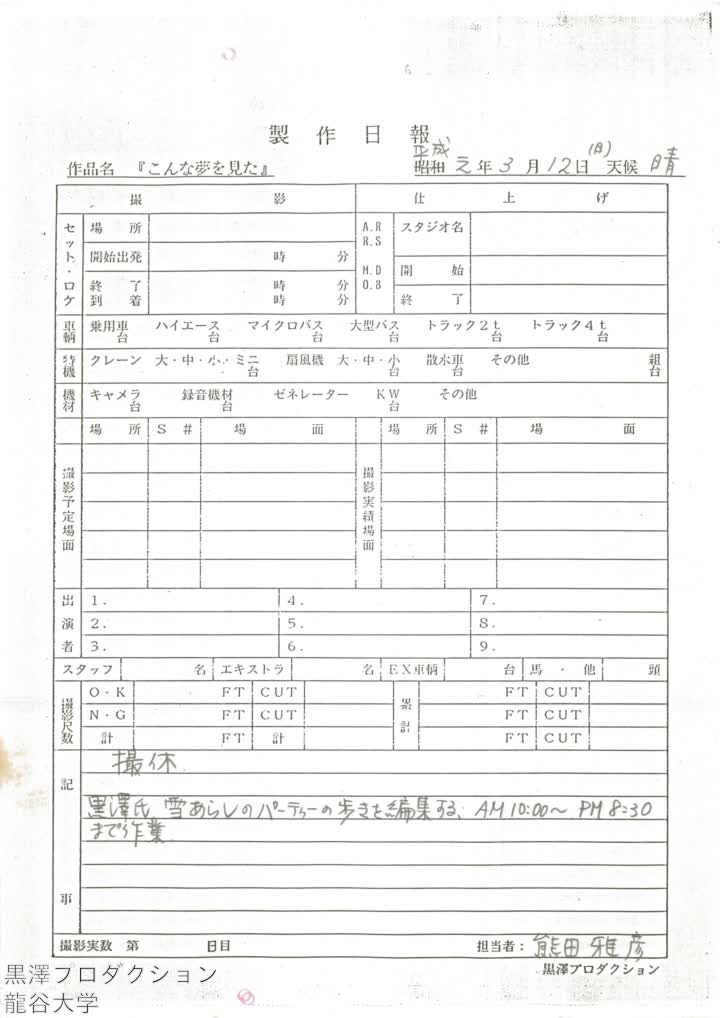 製作日報
作品名 『こんな夢を見た』 昭和 平成 元年 3月 12日 (日) 天候 晴
撮影 仕上げ
セット・ロケ 場所 A.R R.S スタジオ名
開始出発 時 分
M.D O.B 開始
終了 時 分
到着 時 分 終了
車輌 乗用車 台 ハイエース 台 マイクロバス 台 大型バス 台 トラック2t 台 トラック4t 台
特機 クレーン 大・中・小・ミニ 台 扇風機 大・中・小 台 散水車 台 その他 組 台
機材 キャメラ 台 録音機材 台 ゼネレーター KW 台 その他
場所 S# 場面 場所 S# 場面
撮影予定場面 撮影実績場面
出演者
1. 4. 7.
2. 5. 8.
3. 6. 9.
スタッフ 名 エキストラ 名 EX車輌 台 馬・他 頭
撮影尺数 O・K FT CUT 累計 FT CUT
N・G FT CUT FT CUT
計 FT 計 FT CUT
記事
撮休
黒澤氏、雪あらしのパーティーの歩きを編集する、AM10:00〜PM8:30
まで作業
撮影実数 第 日目 担当者: 熊田雅彦
黒澤プロダクション
黒澤プロダクション
龍谷大学